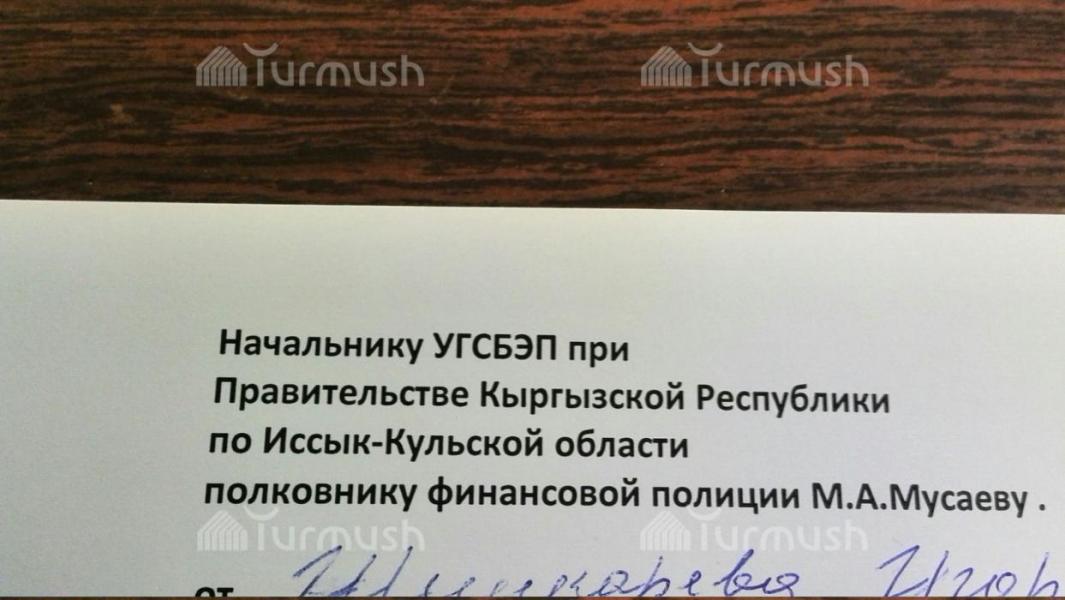 Turmush Turmush
Начальнику УГСБЭП при
Правительстве Кыргызской Республики
по Иссык-Кульской области
полковнику финансовой полиции М.А.Мусаеву .
Turmush Turmush
от